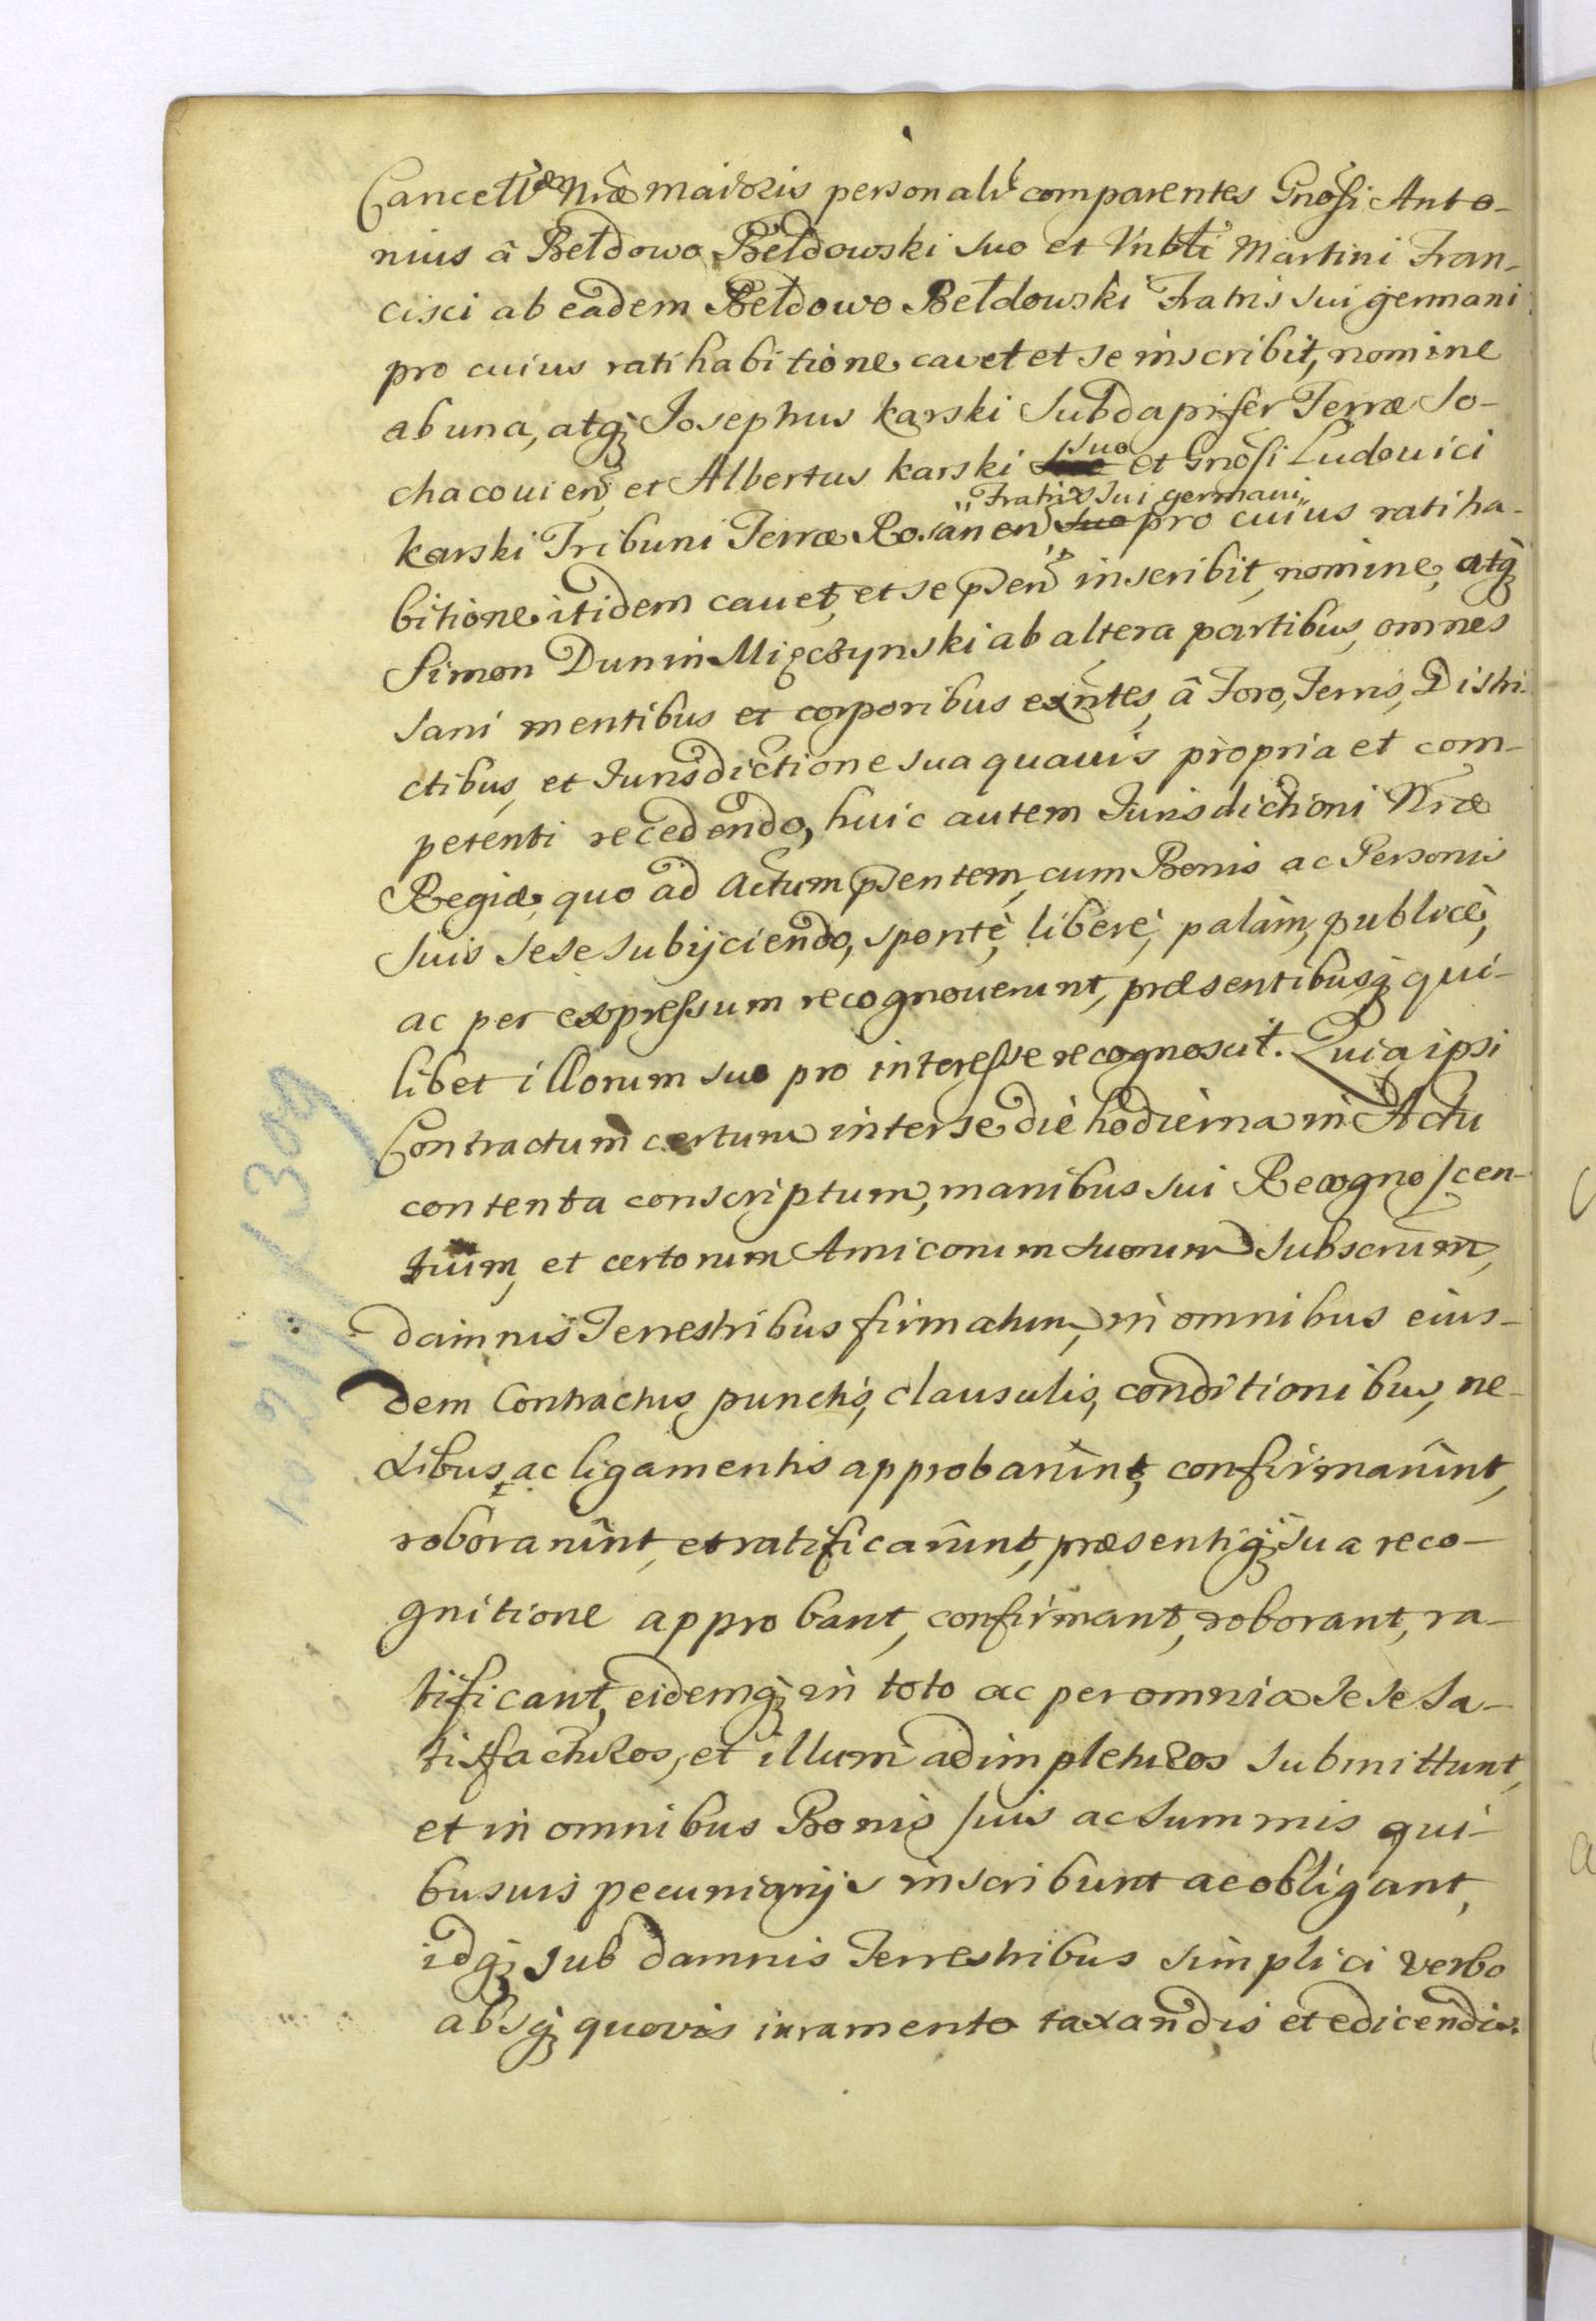 Cancell̃iæ Nr̃æ maioris personalr̃ comparentes Gnõsi Anto-
nius â Bełdowo Bełdowski suo et Vrbłi Martini Fran-
cisci ab eadem Bełdowo Bełdowski Fratris sui germani
pro cuius ratihabitione cavet et se inscribit, nomine
ab una, atq; Josephus Karski Subdapifer Terræ So-
chacouien̄, et Albertus Karski suo et Gnõsi Ludouici
Fratris sui germani
Karski Tribuni Terræ Rosanen̄ suo pro cuius ratiha-
bitione itidem cauet, et se p̃sen̄ inscribit, nomine, atq;
Simon Dunin Mięczynski ab altera partibus, omnes
sani mentibus et corporibus exñtes, â Foro, Terris, Distri-
ctibus, et Jurisdictione sua quauis propria et com-
petenti recedendo, huic autem Jurisdictioni Nr̃æ
Regiæ, quo ad Actum p̃sentem, cum Bonis ac Personis
Suis sese subijciendo, spontè, liberè, palàm, publicè,
ac per expressum recognouerunt, præsentibusq; qui-
libet illorum suo pro interesse recognoscit. Quia ipsi
Contractum certum inter se die hodierna in Actu
contenta conscriptum, manibus sui Recognoscen-
tium, et certorum Amicorum suorum Subscrium,
damnis Terrestribus firmatum, in omnibus eius-
dem Contractus punctis, clausulis, conditionibus, ne-
xibus, ac ligamentis approbarûnt, confirmarûnt,
roborarûnt, et ratificarûnt, præsentiq; sua reco-
gnitione approbant, confirmant, roborant, ra-
tificant, eidemq; in toto ac per omnia sese sa-
tisfacturos, et illum adimpleturos submittunt,
et in omnibus Bonis suis ac summis qui-
busuis pecuniarijs inscribunt ac obligant,
idq; sub damnis Terrestribus simplici verbo
absq; quovis iuramento taxandis et edicendis.